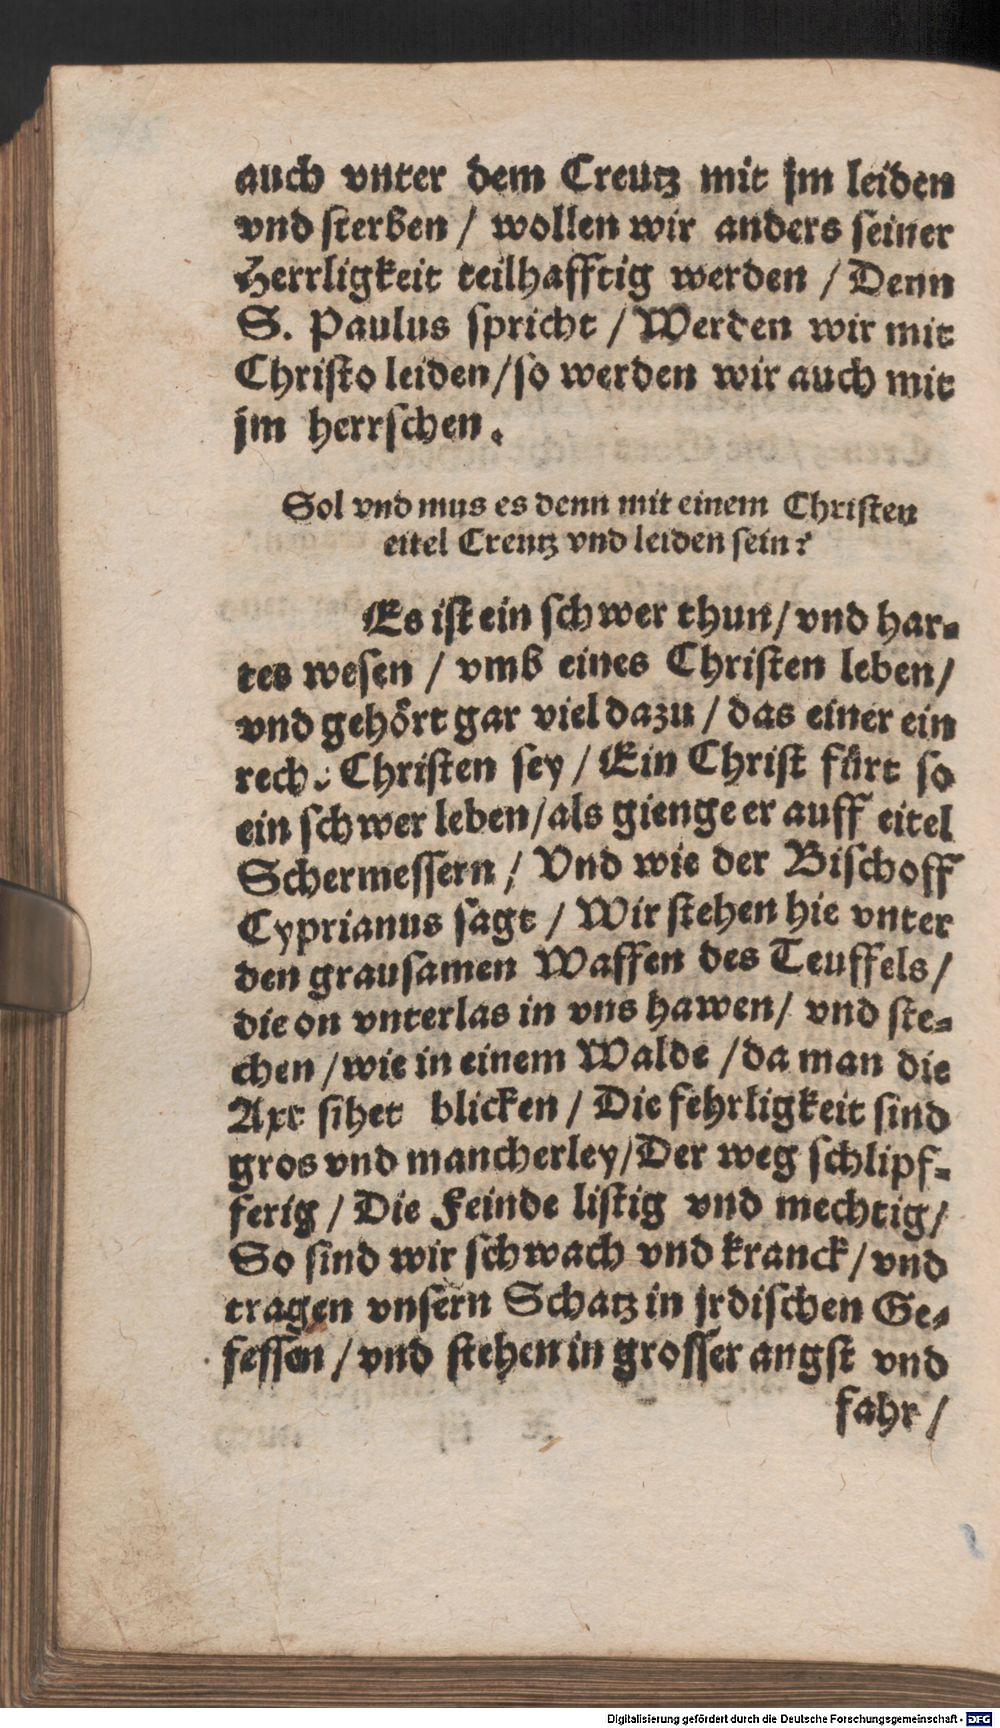 auch vnter dem Creutz mit jm leiden
vnd sterben / wollen wir anders seiner
Herrligkeit teilhafftig werden / Denn
S. Paulus spricht / Werden wir mit
Christo leiden / so werden wir auch mit
jm herrschen.
Sol vnd mus es denn mit einem Christen
eitel Creutz vnd leiden sein?
Es ist ein schwer thun / vnd har-
tes wesen / vmb eines Christen leben /
vnd gehört gar viel dazu / das einer ein
rech. Christen sey / Ein Christ fürt so
ein schwer leben / als gienge er auff eitel
Schermessern / Vnd wie der Bischoff
Cyprianus sagt / Wir stehen hie vnter
den grausamen Waffen des Teuffels /
die on vnterlas in vns hawen / vnd ste-
chen / wie in einem Walde / da man die
Axt sihet blicken / Die fehrligkeit sind
gros vnd mancherley / Der weg schlipf-
ferig / Die Feinde listig vnd mechtig /
So sind wir schwach vnd kranck / vnd
tragen vnsern Schatz in jrdischen Ge-
fessen / vnd stehen in grosser angst vnd
fahr /
Digitalisierung gefördert durch die Deutsche Forschungsgemeinschaft - DFG